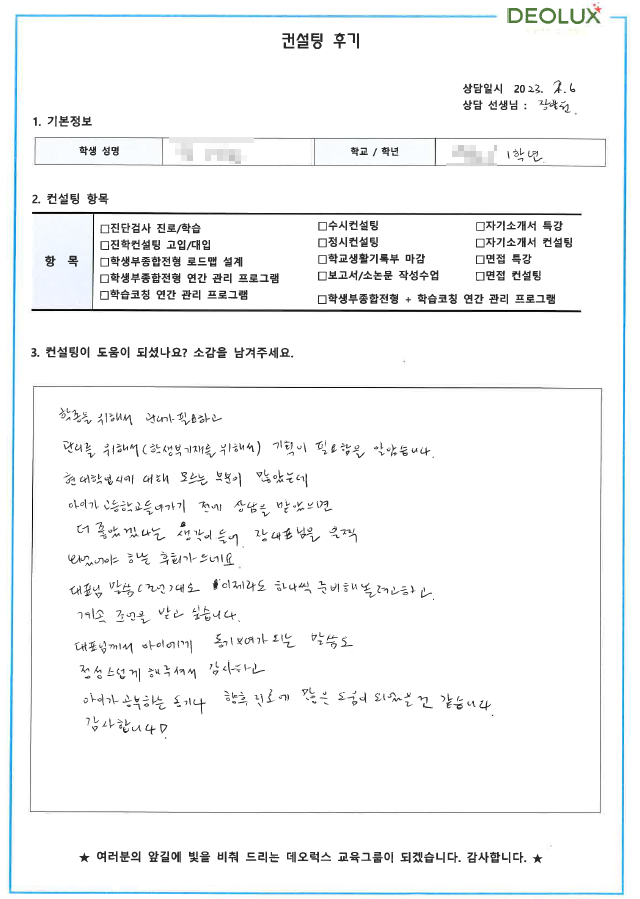 DEOLUX
컨설팅 후기
상담일시 2023. .6
상담 선생님 :
1. 기본정보
학생 성명
학교 / 학년
1학년
2. 컨설팅 항목
항 목
□진단검사 진로/학습
□수시컨설팅
□자기소개서 특강
□진학컨설팅 고입/대입
□정시컨설팅
□자기소개서 컨설팅
□학생부종합전형 로드맵 설계
□학교생활기록부 마감
□면접 특강
□학생부종합전형 연간 관리 프로그램
□보고서/소논문 작성수업
□면접 컨설팅
□학습코칭 연간 관리 프로그램
□학생부종합전형 + 학습코칭 연간 관리 프로그램
3. 컨설팅이 도움이 되셨나요? 소감을 남겨주세요.
학종을 위해서 관리가 필요하고
관리를 위해서 (학생부기재를 위해서) 기획이 필요함을 알았습니다.
현 대학입시에 대해 모르는 부분이 많았는데
아이가 고등학교들어가기 전에 상담을 받았으면
더 좋았겠다는 생각이 들어, 장대표님을 일찍
뵈었어야 하는 후회가 드네요.
대표님 말씀(조언)대로 이제라도 하나씩 준비해볼려고하고,
계속 조언을 받고 싶습니다.
대표님께서 아이에게 동기부여가 되는 말씀도
정성스럽게 해주셔서 감사하고
아이가 공부하는 동기나 향후 진로에 많은 도움이 되었을 것 같습니다.
감사합니다!
★ 여러분의 앞길에 빛을 비춰 드리는 데오럭스 교육그룹이 되겠습니다. 감사합니다. ★